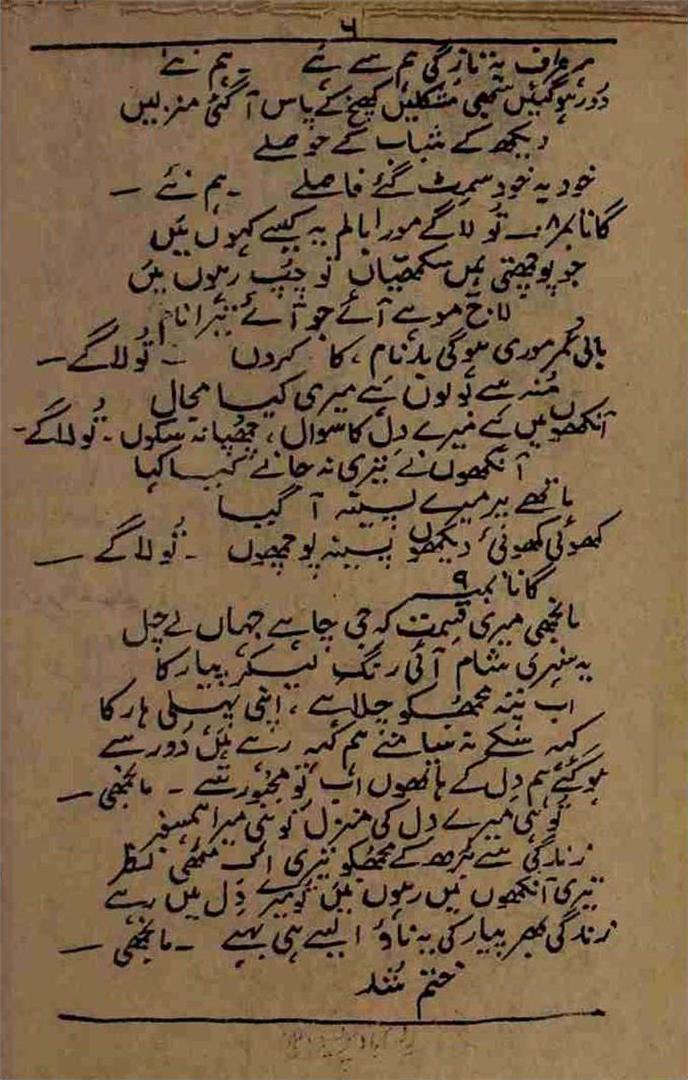 ۶
ہر طرف یہ تازگی ہم سے ہے ۔ ہم نئے
دُور ہوگئیں سبھی مشکلیں کھِچ کے پاس آگئی منزلیں
دیکھ کے شباب کے حوصلے
خود بہ خود سمٹ گئے فاصلے ۔ ہم نئے —
گانا نمبر ۸ ۔ تُو لاگے مورا بالم یہ کیسے کہوں میں
جو پوچھتی ہیں سکھیاں تو چُپ رہوں میں
لاج موسے آئے جو آئے تیرا نام
بالی عُمر موری ہوگی بدنام ، کا کروں ۔ تُو لاگے —
مُنہ سے بولوں ہے میری کیا مجال
آنکھوں میں ہے میرے دِل کا سوال ، چھُپا نہ سکوں ۔ تُو لاگے —
آنکھوں نے تیری نہ جانے کیا کہا
ماتھے پر میرے پسینہ آگیا
کھوئی کھوئی دیکھوں پسینہ پوچھوں ۔ تُو لاگے —
گانا نمبر ۹
مانجھی میری قسمت کے جی چاہے جہاں لے چل
یہ سنہری شام آئی رنگ لیکر پیار کا
اب پتہ مجھکو چلا ہے ، اپنی پہلی ہار کا
کہہ سکے نہ سامنے ہم کہہ رہے ہیں دُور سے
ہوگئے ہم دِل کے ہاتھوں اب تو مجبور سے ۔ مانجھی —
تو ہی میرے دل کی منزل تو ہی میرا ہمسفر
زندگی سے بڑھ کے مجھکو تیری اک میٹھی نظر
تیری آنکھوں میں رہوں میں تو میرے دِل میں رہے
زندگی بھر پیار کی یہ ناؤ ایسے ہی بہے ۔ مانجھی —
ختم شُد